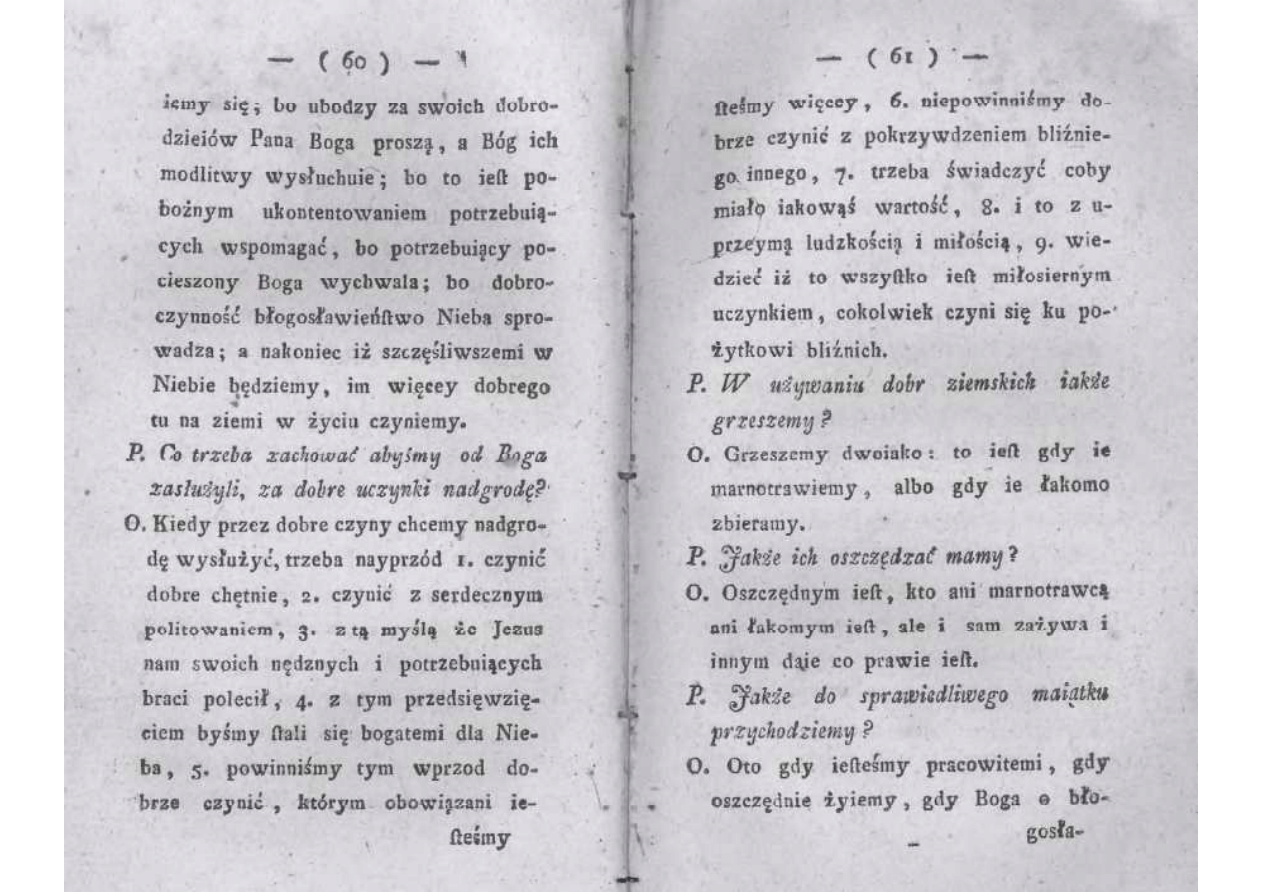 — ( 60 ) —
iemy się; bo ubodzy za swoich dobro-
dzieiów Pana Boga proszą, a Bóg ich
modlitwy wysłuchuie; bo to ieſt po-
bożnym ukontentowaniem potrzebuią-
cych wspomagać, bo potrzebuiący po-
cieszony Boga wychwala; bo dobro-
czynność błogosławieńſtwo Nieba spro-
wadza; a nakoniec iż szczęśliwszemi w
Niebie będziemy, im więcey dobrego
tu na ziemi w życiu czyniemy.
P. Co trzeba zachować abyśmy od Boga
zasłużyli, za dobre uczynki nadgrodę?
O. Kiedy przez dobre czyny chcemy nadgro-
dę wysłużyć, trzeba nayprzód 1. czynić
dobre chętnie, 2. czynić z serdecznym
politowaniem, 3. z tą myślą że Jezus
nam swoich nędznych i potrzebuiących
braci polecił, 4. z tym przedsięwzię-
ciem byśmy ſtali się bogatemi dla Nie-
ba, 5. powinniśmy tym wprzod do-
brze czynić, którym obowiązani ie-
ſteśmy
— ( 61 ) —
ſteśmy więcey, 6. niepowinniśmy do-
brze czynić z pokrzywdzeniem bliźnie-
go innego, 7. trzeba świadczyć coby
miało iakowąś wartość, 8. i to z u-
przeymą ludzkością i miłością, 9. wie-
dzieć iż to wszyſtko ieſt miłosiernym
uczynkiem, cokolwiek czyni się ku po-
żytkowi bliźnich.
P. W używaniu dobr ziemskich iakże
grzeszemy?
O. Grzeszemy dwoiako: to ieſt gdy ie
marnotrawiemy, albo gdy ie łakomo
zbieramy.
P. Jakże ich oszczędzać mamy?
O. Oszczędnym ieſt, kto ani marnotrawcą
ani łakomym ieſt, ale i sam zażywa i
innym daie co prawie ieſt.
P. Jakże do sprawiedliwego maiątku
przychodziemy?
O. Oto gdy ieſteśmy pracowitemi, gdy
oszczędnie żyiemy, gdy Boga o bło-
gosła-